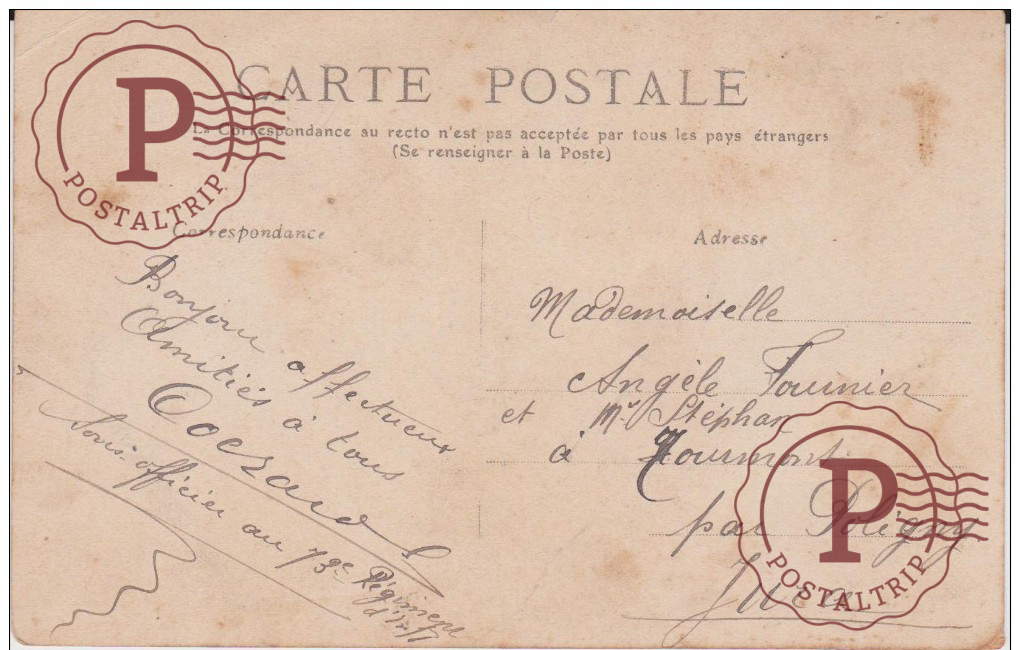 CARTE POSTALE
La Correspondance au recto n'est pas acceptée par tous les pays étrangers
(Se renseigner à la Poste)
P
POSTALTRIP
Correspondance
Bonjour affectueux
Amitiés à tous
Sous-officier au 73ᵉ Régiment
Adresse
Mademoiselle
Angèle Fournier
et Mʳ Stéphan
à Tourmont
par Poligny
Jura
P
POSTALTRIP